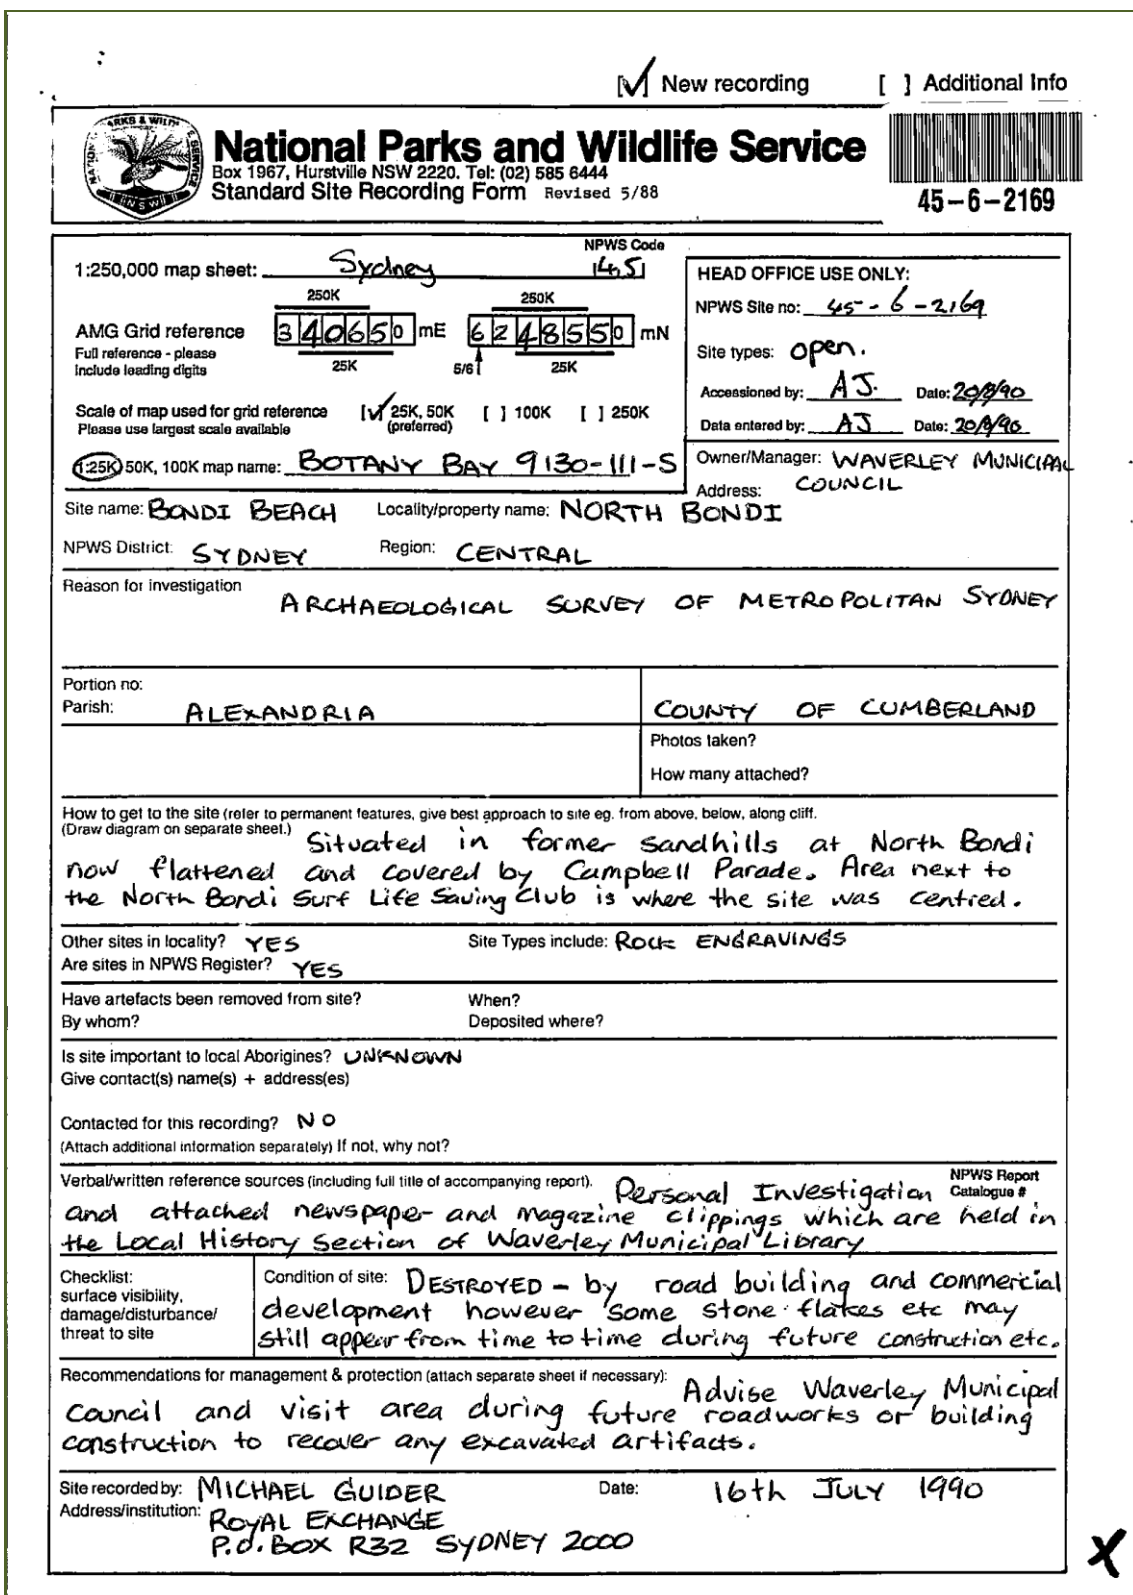 [✓] New recording [ ] Additional Info
National Parks and Wildlife Service
Box 1967, Hurstville NSW 2220. Tel: (02) 585 6444
Standard Site Recording Form Revised 5/88
45-6-2169
NPWS Code
1:250,000 map sheet: Sydney 1451
250K 250K
AMG Grid reference 340650 mE 6248550 mN
Full reference - please
include leading digits
25K 5/6 25K
Scale of map used for grid reference [✓] 25K, 50K [ ] 100K [ ] 250K
Please use largest scale available (preferred)
1:25K, 50K, 100K map name: BOTANY BAY 9130-111-S
HEAD OFFICE USE ONLY:
NPWS Site no: 45-6-2169
Site types: open.
Accessioned by: AJ. Date: 20/8/90
Data entered by: AJ Date: 20/8/90
Owner/Manager: WAVERLEY MUNICIPAL
Address: COUNCIL
Site name: BONDI BEACH Locality/property name: NORTH BONDI
NPWS District: SYDNEY Region: CENTRAL
Reason for investigation
ARCHAEOLOGICAL SURVEY OF METROPOLITAN SYDNEY
Portion no:
Parish: ALEXANDRIA COUNTY OF CUMBERLAND
Photos taken?
How many attached?
How to get to the site (refer to permanent features, give best approach to site eg. from above, below, along cliff.
(Draw diagram on separate sheet.) Situated in former sandhills at North Bondi
now flattened and covered by Campbell Parade. Area next to
the North Bondi Surf Life Saving Club is where the site was centred.
Other sites in locality? YES Site Types include: ROCK ENGRAVINGS
Are sites in NPWS Register? YES
Have artefacts been removed from site? When?
By whom? Deposited where?
Is site important to local Aborigines? UNKNOWN
Give contact(s) name(s) + address(es)
Contacted for this recording? NO
(Attach additional information separately) If not, why not?
Verbal/written reference sources (including full title of accompanying report). NPWS Report
Catalogue #
Personal Investigation
and attached newspaper and magazine clippings which are held in
the Local History Section of Waverley Municipal Library
Checklist:
surface visibility,
damage/disturbance/
threat to site
Condition of site: DESTROYED - by road building and commercial
development however some stone flakes etc may
still appear from time to time during future construction etc.
Recommendations for management & protection (attach separate sheet if necessary): Advise Waverley Municipal
Council and visit area during future roadworks or building
construction to recover any excavated artifacts.
Site recorded by: MICHAEL GUIDER Date: 16th JULY 1990
Address/institution: ROYAL EXCHANGE
P.O. BOX R32 SYDNEY 2000
X